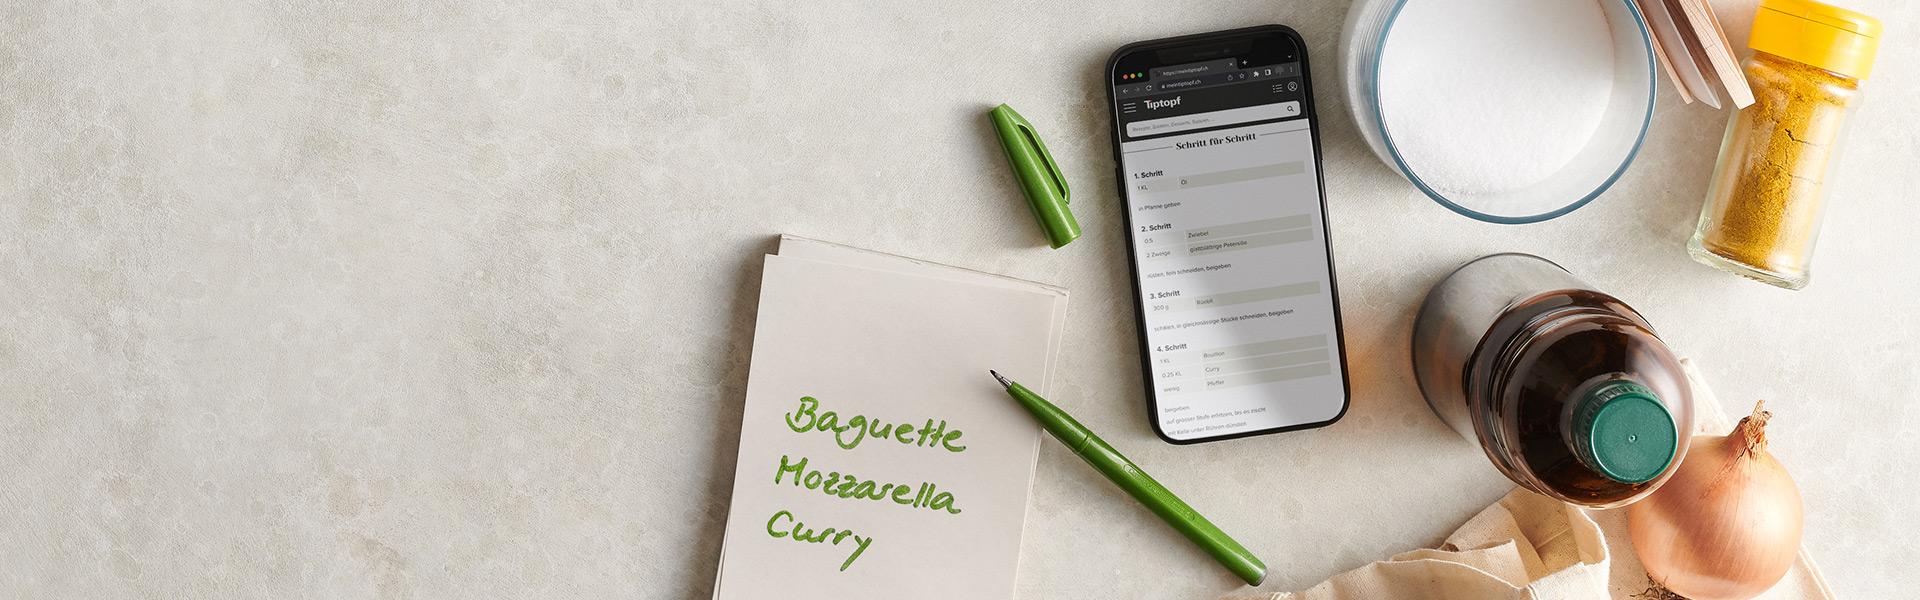 https://meintiptopf.ch
meintiptopf.ch
Tiptopf
Schritt für Schritt
1. Schritt
1 KL Öl
in Pfanne geben
2. Schritt
0.5 Zwiebel
2 Zweige glattblättrige Petersilie
rüsten, fein schneiden, beigeben
3. Schritt
300 g Rüebli
schälen, in gleichmässige Stücke schneiden, beigeben
4. Schritt
1 KL Bouillon
0.25 KL Curry
wenig Pfeffer
beigeben
auf grosser Stufe erhitzen, bis es zischt
mit Kelle unter Rühren dünsten
Baguette
Mozzarella
Curry